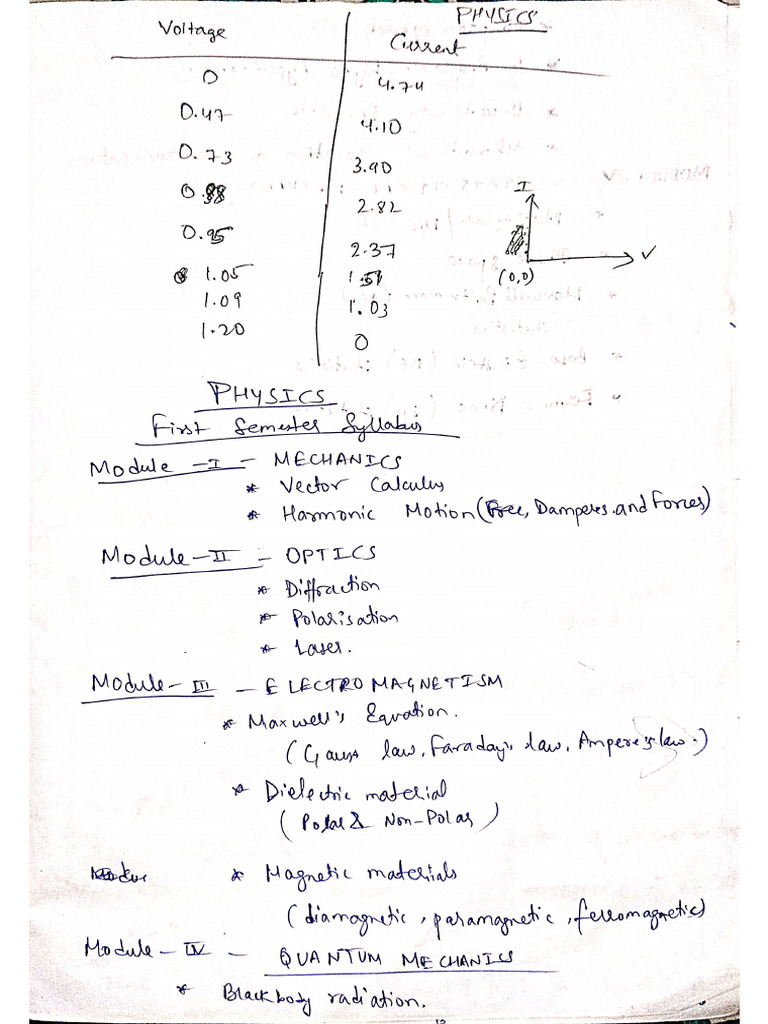 PHYSICS
Voltage Current
0 4.74
0.47 4.10
0.73 3.90
0.88 2.82
0.95 2.37
1.05 1.51
1.09 1.03
1.20 0
I
V
(0,0)
PHYSICS
First Semester Syllabus
Module - I - MECHANICS
* Vector Calculus
* Harmonic Motion (Free, Damperes and Forces)
Module - II - OPTICS
* Diffraction
* Polarisation
* Laser.
Module - III - ELECTROMAGNETISM
* Maxwell's Equation.
(Gauss law, Faraday's law, Ampere's law.)
* Dielectric material
(Polar & Non-Polar)
* Magnetic materials
(diamagnetic, paramagnetic, ferromagnetic)
Module - IV - QUANTUM MECHANICS
* Blackbody radiation.